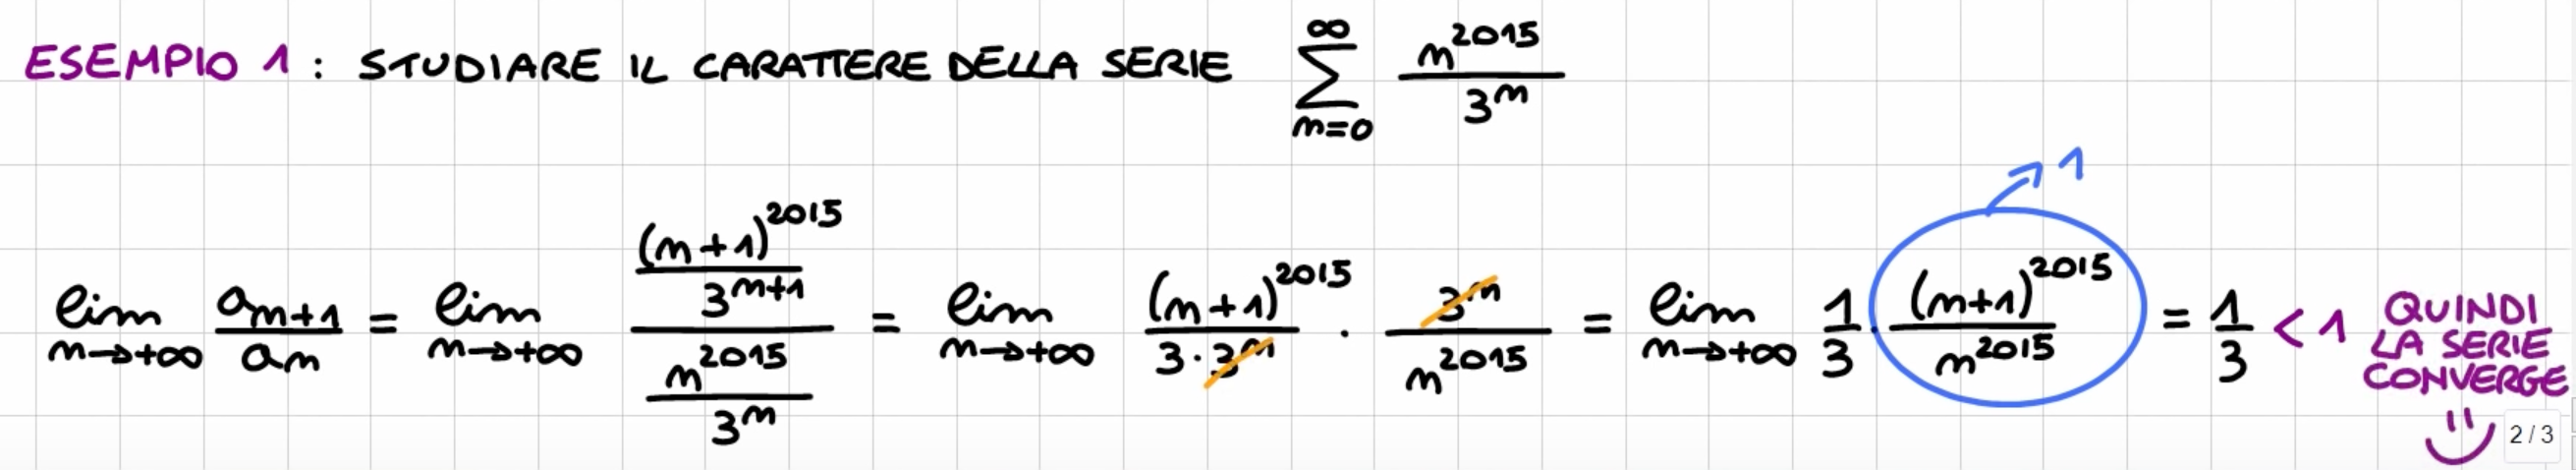 ESEMPIO 1 : STUDIARE IL CARATTERE DELLA SERIE ∑_{n=0}^{∞} n^{2015}/3^{n}
lim_{n→+∞} a_{n+1}/a_{n} = lim_{n→+∞} ((n+1)^{2015}/3^{n+1})/(n^{2015}/3^{n}) = lim_{n→+∞} (n+1)^{2015}/(3·3^{n}) · 3^{n}/n^{2015} = lim_{n→+∞} 1/3 · (n+1)^{2015}/n^{2015} → 1 = 1/3 < 1 QUINDI
LA SERIE
CONVERGE
2 / 3